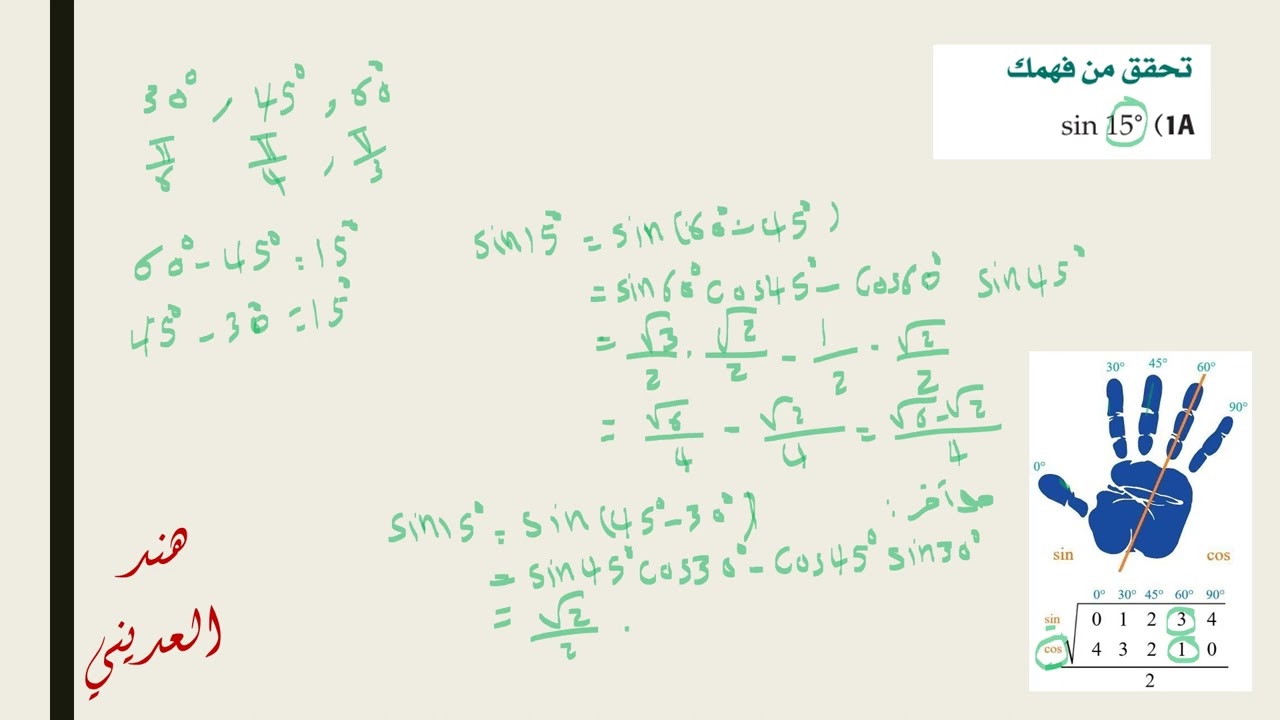 تحقق من فهمك
sin 15° (1A
30° , 45° , 60°
π/6 π/4 , π/3
60° - 45° = 15°
45° - 30° = 15°
sin15° = sin(60° - 45°)
= sin60° cos45° - cos60° sin45°
= √3/2 . √2/2 - 1/2 . √2/2
= √6/4 - √2/4 = √6-√2/4
حل آخر :
sin15° = sin(45° - 30°)
= sin45° cos30° - cos45° sin30°
= √2/2 .
0° 30° 45° 60° 90°
sin cos
0° 30° 45° 60° 90°
sin 0 1 2 3 4
cos √ 4 3 2 1 0
2
هند
العديني